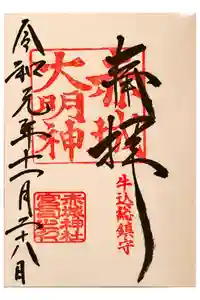 奉拝
牛込総鎮守
赤城
大明神
赤城神社
令和元年十一月二十八日